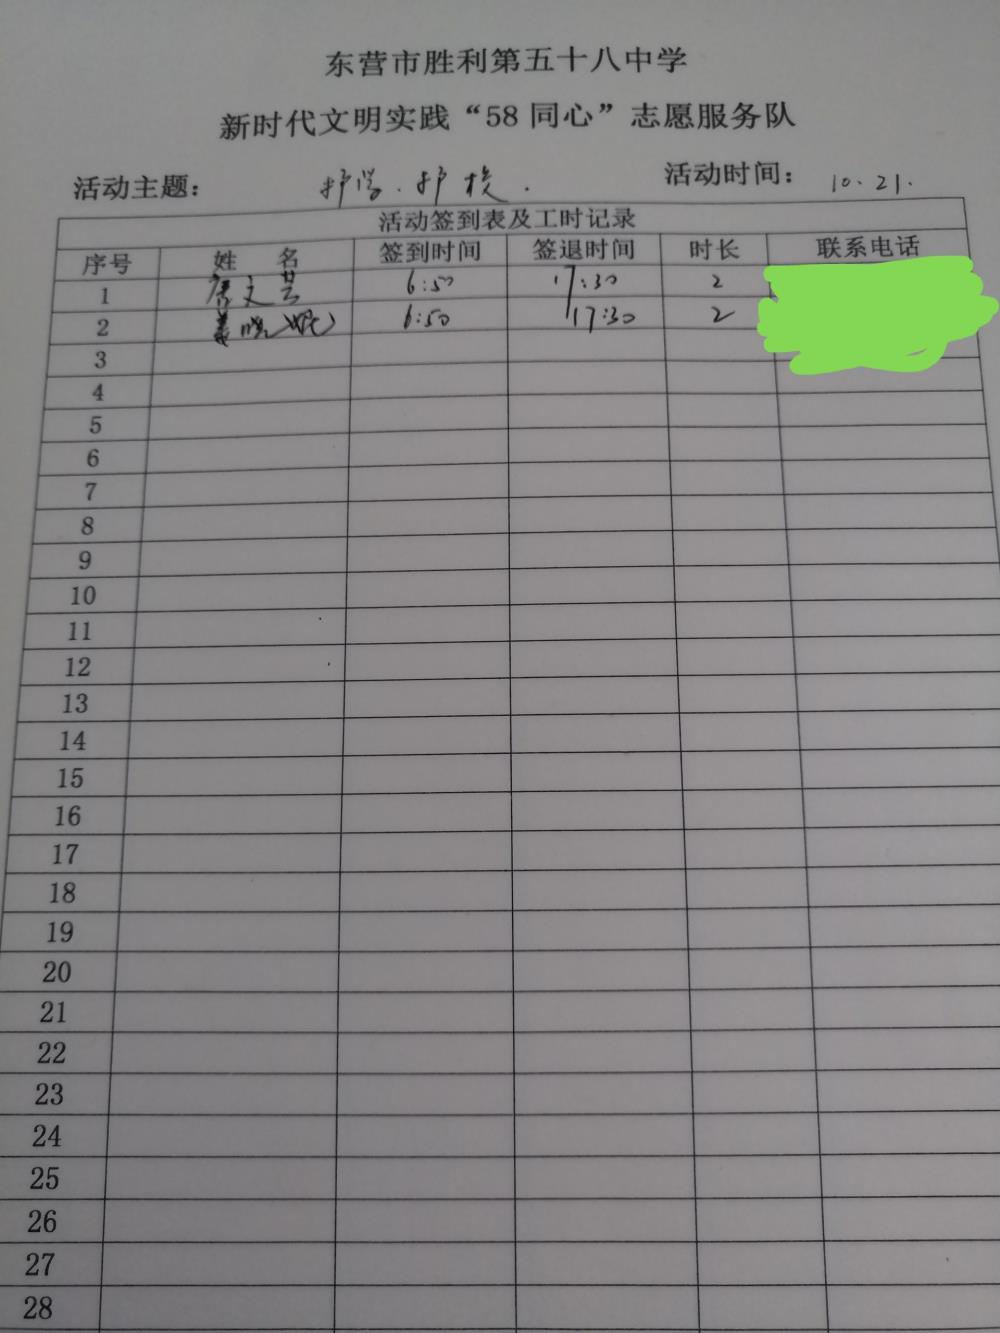 东营市胜利第五十八中学
新时代文明实践“58 同心”志愿服务队
活动主题： 护学.护校. 活动时间： 10.21.
活动签到表及工时记录
序号 姓 名 签到时间 签退时间 时长 联系电话
1 唐文芸 6:50 17:30 2
2 6:50 17:30 2
3
4
5
6
7
8
9
10
11
12
13
14
15
16
17
18
19
20
21
22
23
24
25
26
27
28